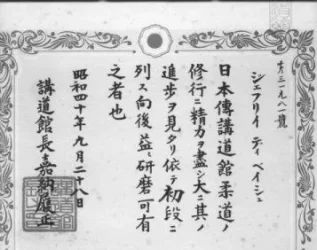 第三一九八一號
シェフリイ ティ ベイシュ
日本傳講道館柔道ノ
修行ニ精力ヲ盡シ大ニ其ノ
進歩ヲ見タリ依テ初段ニ
列ス向後益〻研磨可有
之者也
昭和四十年九月二十八日
講道館長嘉納履正